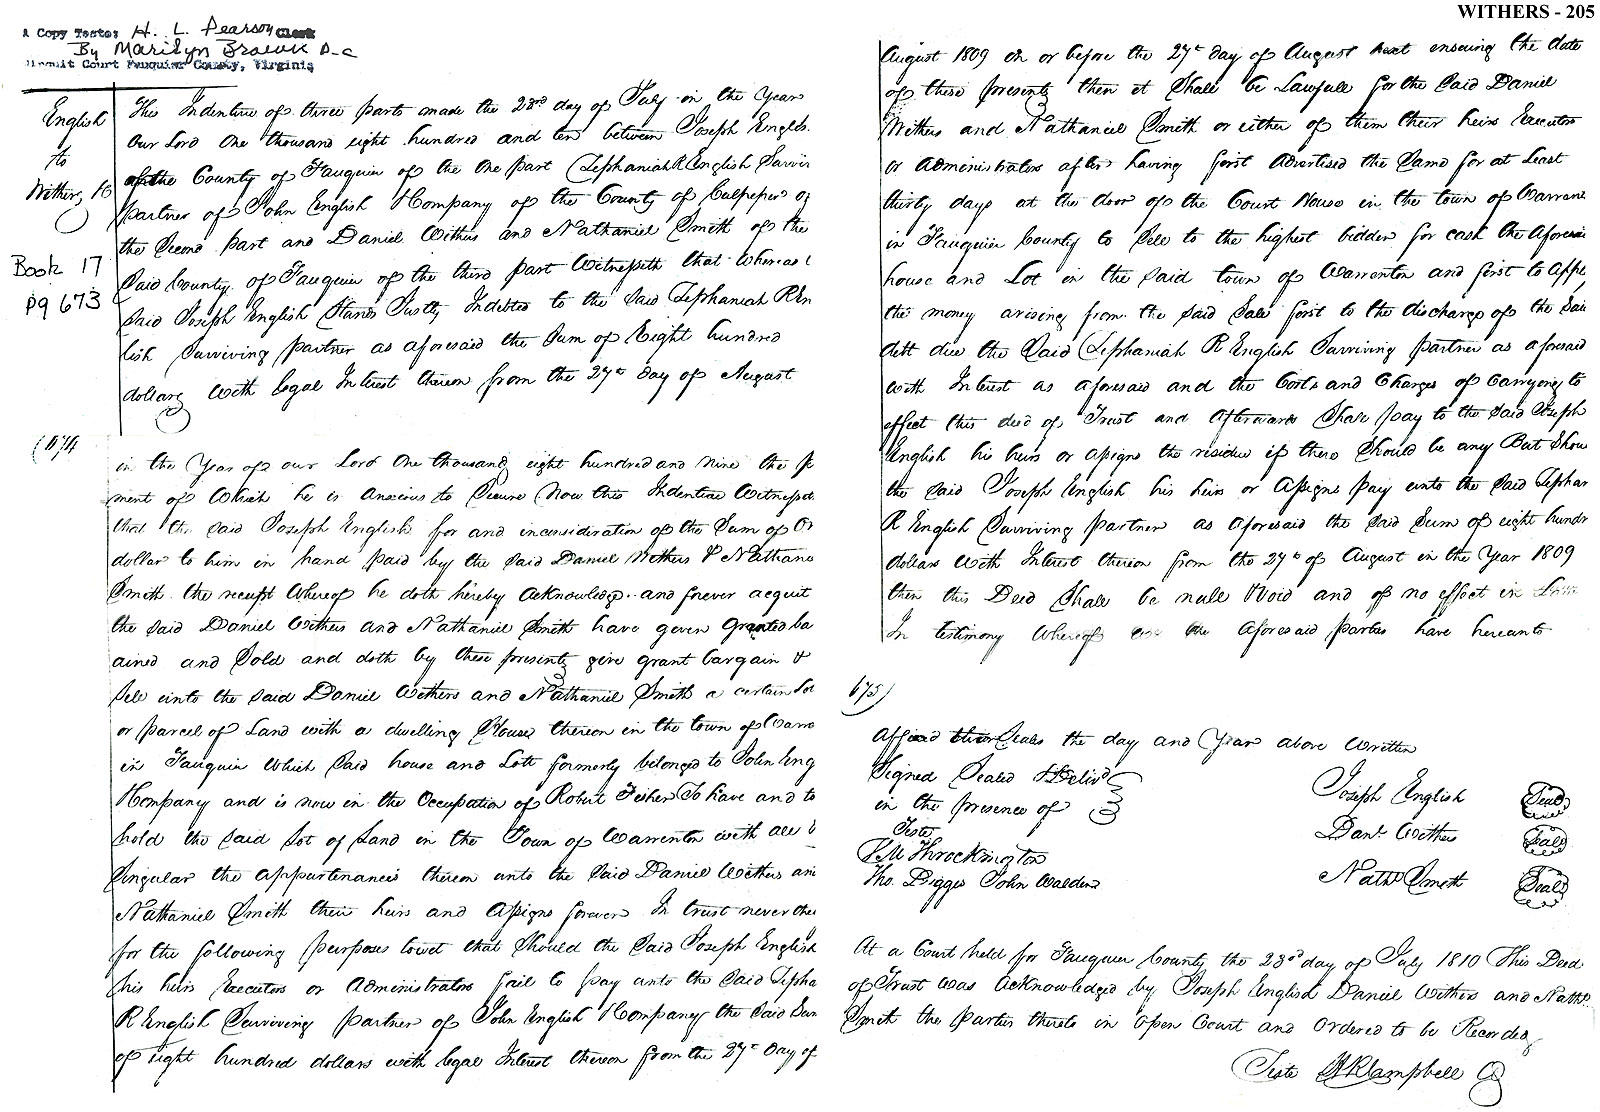 WITHERS - 205
A Copy Teste: H. L. Pearson Clerk
By Marilyn D-C
Circuit Court Fauquier County, Virginia
English
to
Withers &c
Book 17
pg 673
This Indenture of three parts made the 23rd day of July in the Year
our Lord One thousand eight hundred and ten between Joseph Englis
of the County of Fauquier of the one part Zephaniah R English Survivi
partner of John English & Company of the County of Culpeper of
the Second part and Daniel Withers and Nathaniel Smith of the
Said County of Fauquier of the third part Witnesseth that whereas t
Said Joseph English Stands Justly Indebted to the Said Zephaniah R En
lish Surviving partner as aforesaid the Sum of Eight hundred
dollars with legal Interest thereon from the 27th day of August
(674
in the Year of our Lord One thousand eight hundred and nine the p
ment of Which he is anxious to Secure Now this Indenture Witnesse
that the said Joseph English for and in consideration of the Sum of On
dollar to him in hand paid by the Said Daniel Withers & Nathani
Smith the receipt whereof he doth hereby acknowledge and forever acquit
the said Daniel Withers and Nathaniel Smith have given granted ba
ained and Sold and doth by these presents give grant bargain &
Sell unto the said Daniel Withers and Nathaniel Smith a certain Lot
or parcel of Land with a dwelling House thereon in the town of Warre
in Fauquier Which Said house and Lott formerly belonged to John Eng
& Company and is now in the Occupation of Robert Fisher To have and to
hold the said Lot of Land in the Town of Warrenton with all &
Singular the appurtenances thereon unto the Said Daniel Withers an
Nathaniel Smith their heirs and assigns forever In trust never the
for the following purposes towit that Should the Said Joseph English
his heirs Executors or Administrators fail to pay unto the Said Zepha
R English Surviving partner of John English & Company the Said Sum
of eight hundred dollars with legal Interest thereon from the 27th Day of
August 1809 on or before the 27th day of August next ensuing the date
of these presents then it Shall be Lawfull for the Said Daniel
Withers and Nathaniel Smith or either of them their heirs Executors
or administrators after having first advertised the Same for at Least
thirty days at the door of the Court House in the town of Warrent
in Fauquier County to Sell to the highest bidder for cash the aforesai
house and Lot in the said town of Warrenton and first to appl
the money arising from the said Sale first to the discharge of the Sai
debt due the Said Zephaniah R English Surviving partner as aforesaid
with Interest as aforesaid and the Costs and Charges of carrying to
effect this deed of Trust and afterwards Shall pay to the said Joseph
English his heirs or assigns the residue if there Should be any But Shou
the said Joseph English his heirs or Assigns pay unto the Said Zephan
R English Surviving partner as aforesaid the Said Sum of eight hundr
dollars With Interest thereon from the 27th of August in the Year 1809
then this Deed Shall be null & Void and of no effect in Law
In testimony Whereof we the aforesaid parties have hereunto
675)
Affixed their Seals the day and Year above Written
Signed Sealed & Delivd
in the presence of
Teste
Joseph English Seal
Danl Withers Seal
Nathl Smith Seal
Throckmorton
Tho. Diggs John Walden
At a Court held for Fauquier County the 23rd day of July 1810 This Deed
of Trust was Acknowledged by Joseph English Daniel Withers and Nathl
Smith the parties thereto in open Court and Ordered to be Recorded
Teste Campbell